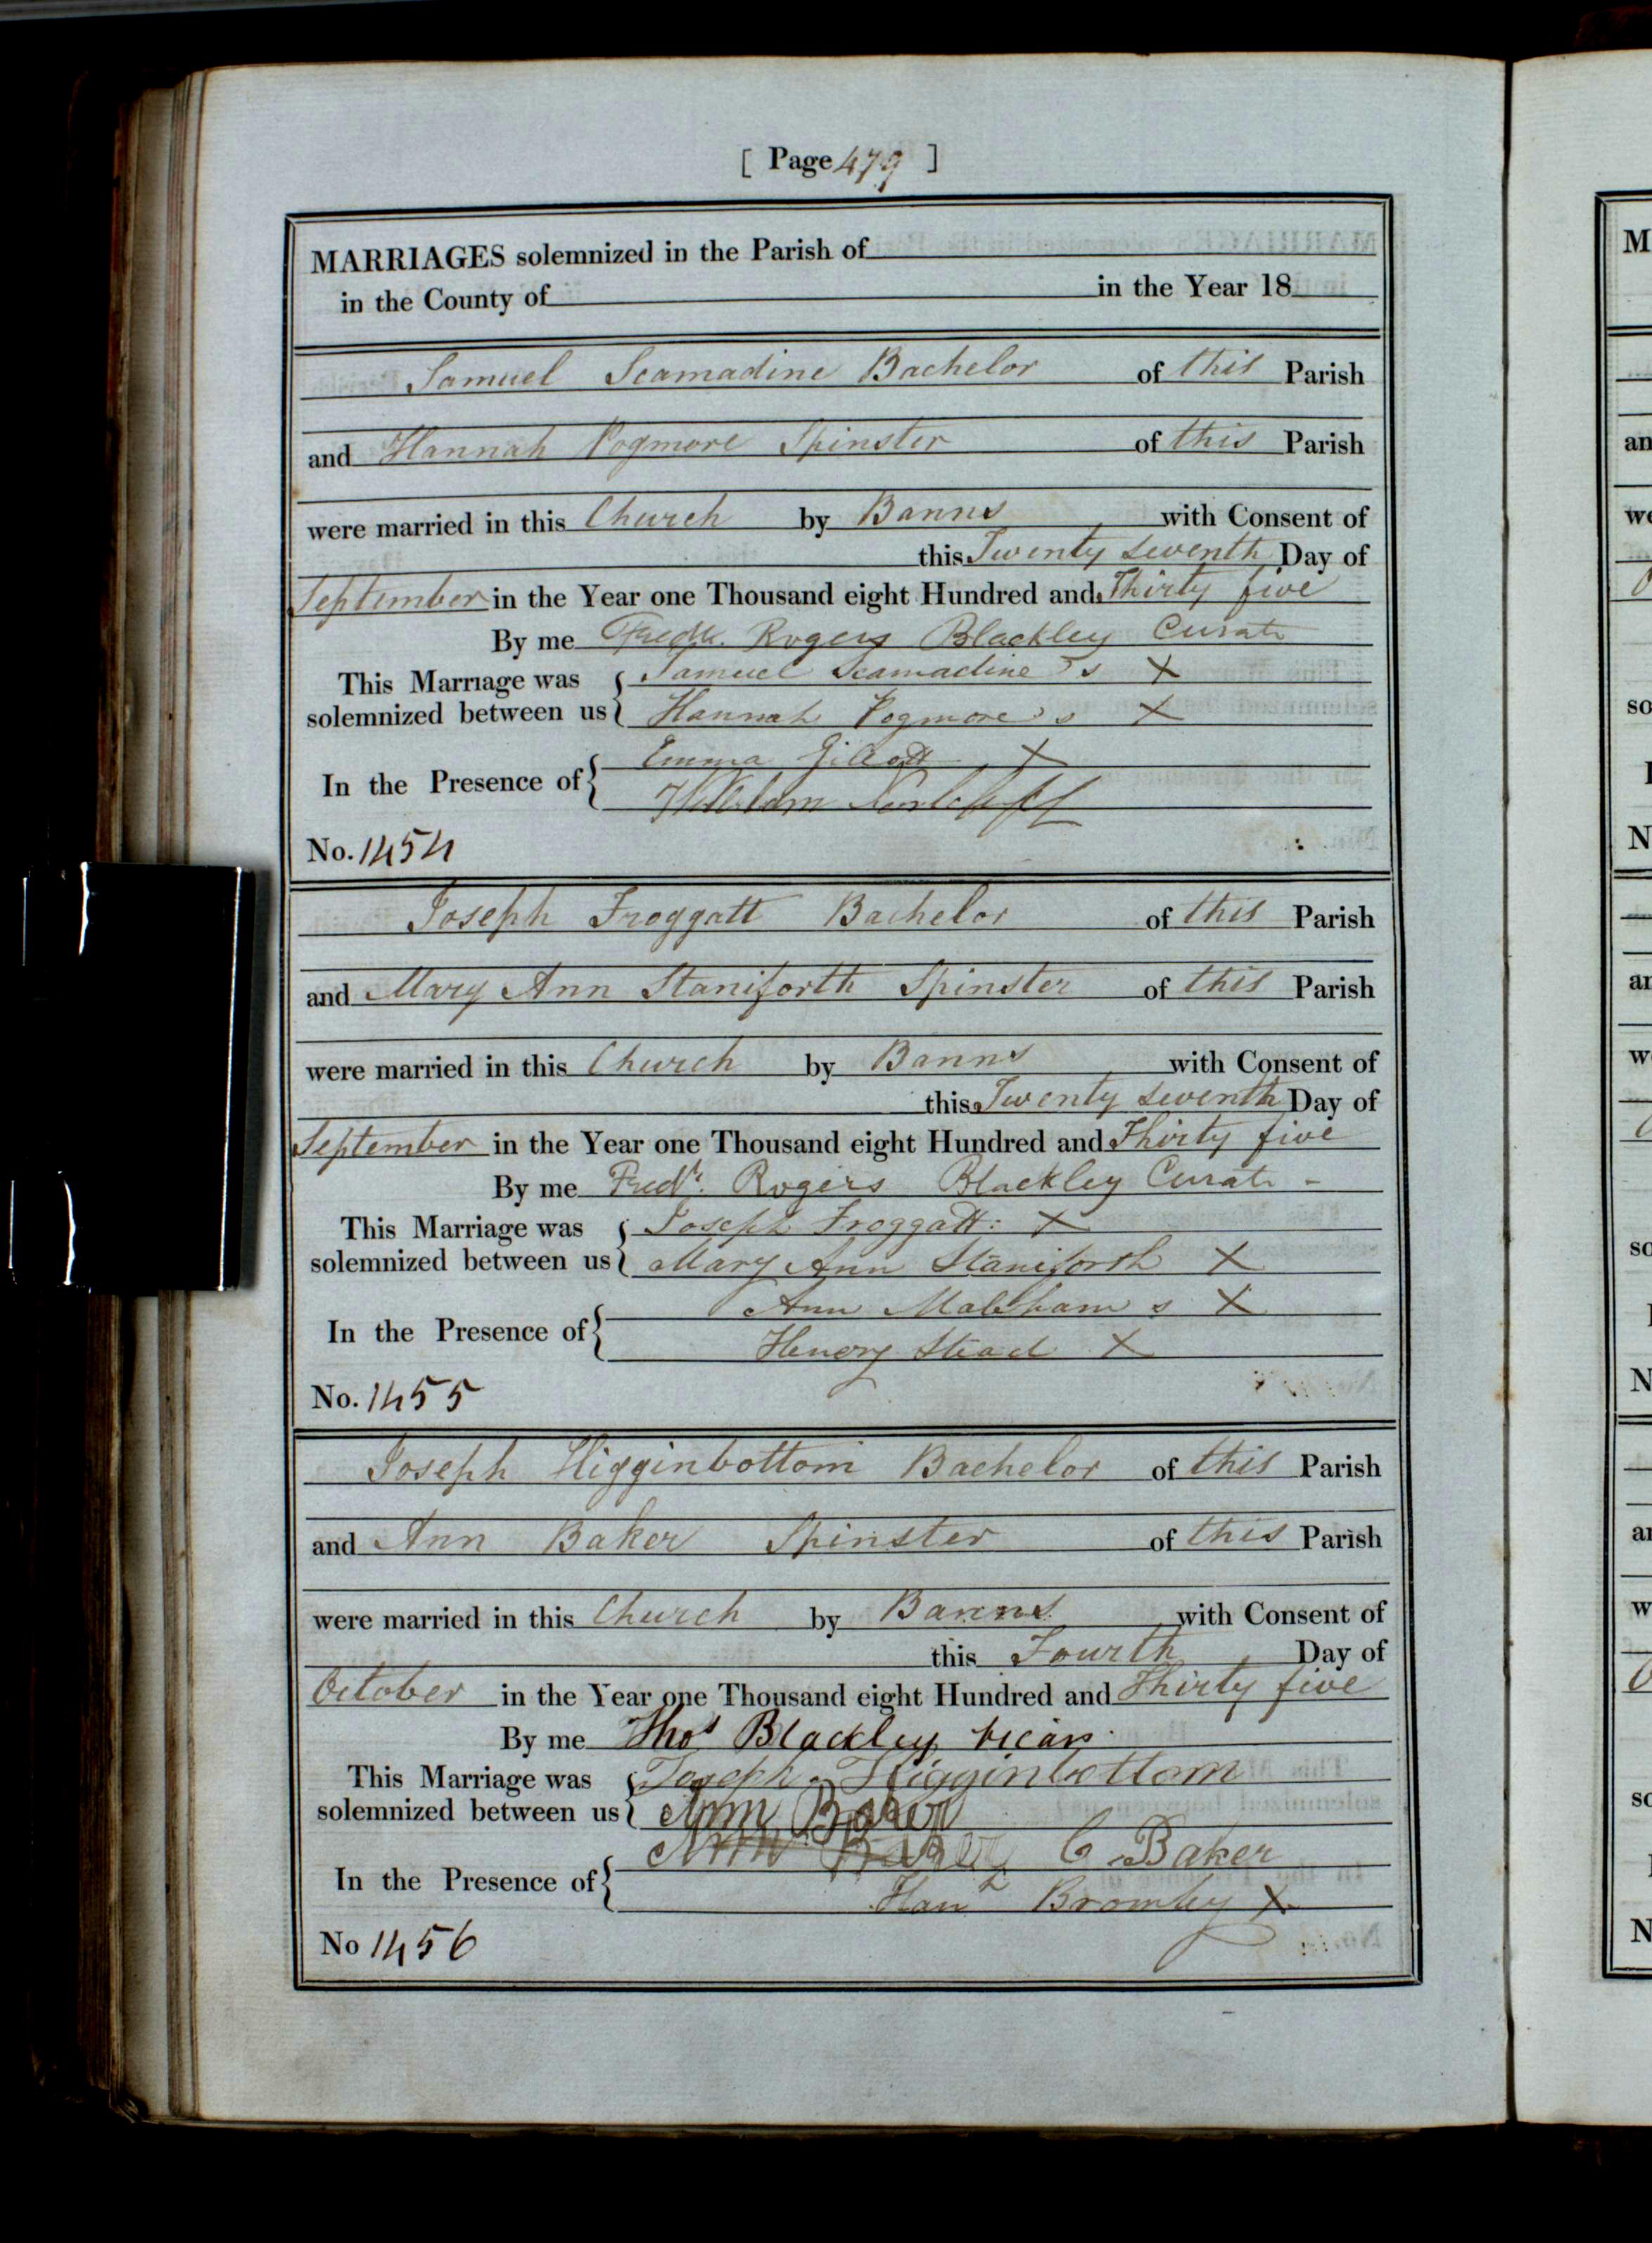 [ Page 479 ]
MARRIAGES solemnized in the Parish of
in the County of in the Year 18
Samuel Scamadine Bachelor of this Parish
and Hannah Pogmore Spinster of this Parish
were married in this Church by Banns with Consent of
this Twenty seventh Day of
September in the Year one Thousand eight Hundred and Thirty five
By me Fredk. Rogers Blackley Curate
This Marriage was Samuel Scamadine's X
solemnized between us Hannah Pogmore's X
Emma X
In the Presence of William
No. 1454
Joseph Froggatt Bachelor of this Parish
and Mary Ann Staniforth Spinster of this Parish
were married in this Church by Banns with Consent of
this Twenty seventh Day of
September in the Year one Thousand eight Hundred and Thirty five
By me Fredk. Rogers Blackley Curate
This Marriage was Joseph Froggatt: X
solemnized between us Mary Ann Staniforth X
Ann s X
In the Presence of Henry Stead X
No. 1455
Joseph Higginbottom Bachelor of this Parish
and Ann Baker Spinster of this Parish
were married in this Church by Banns with Consent of
this Fourth Day of
October in the Year one Thousand eight Hundred and Thirty five
By me Thos Blackley Vicar
This Marriage was Joseph Higginbottom
solemnized between us Ann Baker
Ann Baker C Baker
In the Presence of Hanh Bromley X
No 1456